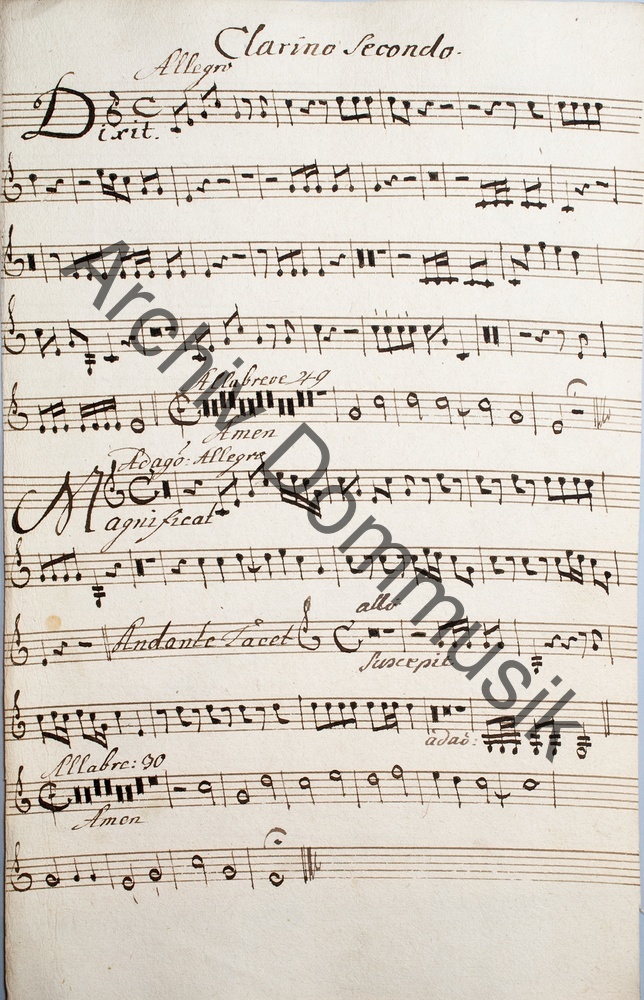 Clarino Secondo.
Allegro
Dixit.
Allabreve 49
Amen
Adagº: Allegro
Magnificat
Andante Tacet
allº
Suscepit
adaº:
Allabre: 30
Amen
Archiv Dommusik